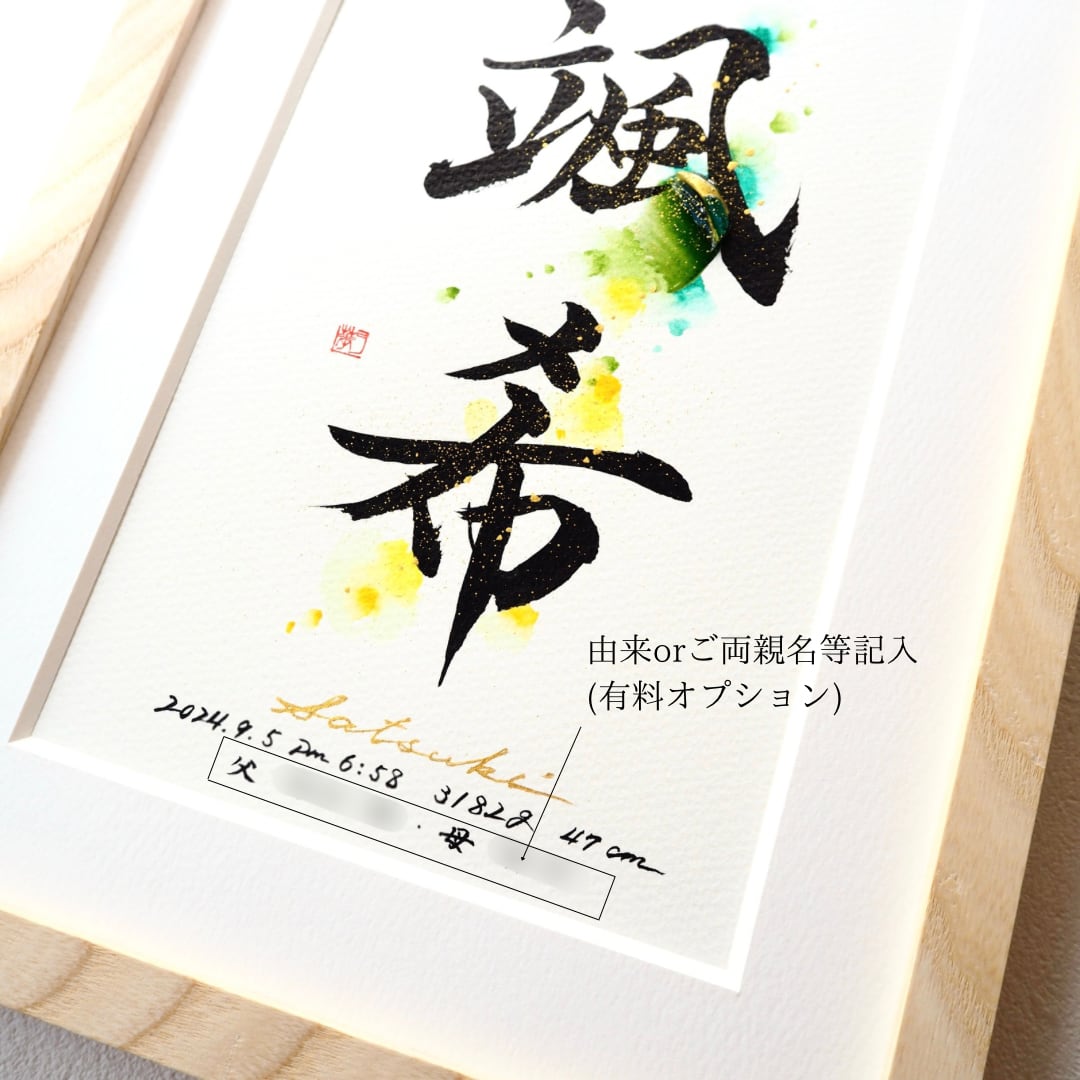 颯
希
Satsuki
2024.9.5 pm 6:58 3182g 47cm
父 ・母
由来orご両親名等記入
(有料オプション)